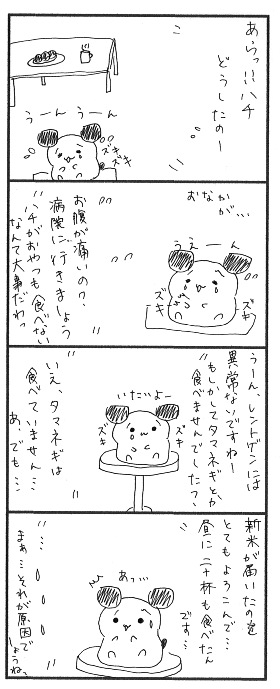 あらっ!!ハチ
どうしたのー
うーん うーん
ズキ
ズキ
おなかが…
うえーん
ズキ
ズキ
お腹が痛いの?
病院に行きましょう
ハチがおやつも食べない
なんて大事だわっ
うーん、レントゲンには
異常ないですねー
もしかしてタマネギとか
食べませんでしたっ?
いたいよー
ズキ
ズキ
いえ、タマネギは
食べていません…
あ、でも…
新米が届いたのを
とてもよろこんで…
昼に二十杯も食べたん
です…
あっ…
…
まぁ…それが原因で
しょうね、